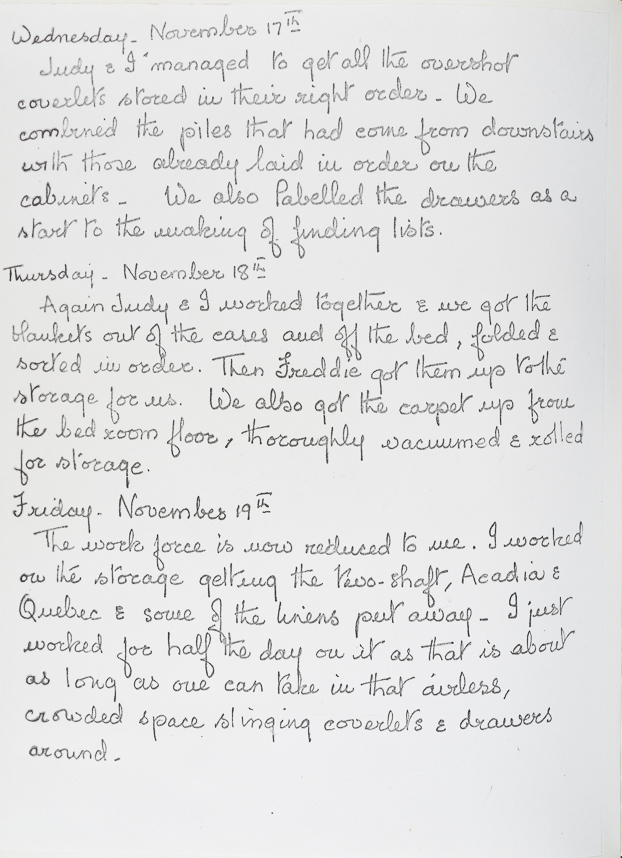 Wednesday - November 17th
Judy & I managed to get all the overshot
coverlets stored in their right order - We
combined the piles that had come from downstairs
with those already laid in order on the
cabinets - We also labelled the drawers as a
start to the making of finding lists.
Thursday - November 18th
Again Judy & I worked together & we got the
blankets out of the cases and off the bed, folded &
sorted in order. Then Freddie got them up to the
storage for us. We also got the carpet up from
the bed room floor, thoroughly vacuumed & rolled
for storage.
Friday - November 19th
The work force is now reduced to me. I worked
on the storage getting the two-shaft, Acadia &
Quebec & some of the linens put away - I just
worked for half the day on it as that is about
as long as one can take in that airless,
crowded space slinging coverlets & drawers
around -